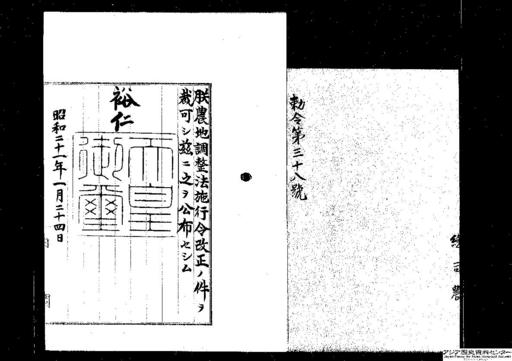 朕農地調整法施行令改正ノ件ヲ
裁可シ茲ニ之ヲ公布セシム
裕仁
天皇御璽
昭和二十一年一月二十四日
勅令第三十八號
アジア歴史資料センター